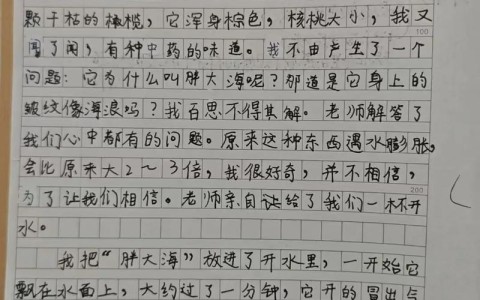 颗干枯的橄榄，它浑身棕色，核桃大小，我又
闻了闻，有种中药的味道。我不由产生了一个
100
问题：它为什么叫胖大海呢？那道是它身上的
皱纹像海浪吗？我百思不得其解。老师解答了
我们心中都有的问题。原来这种东西遇水膨胀，
会比原来大2～3倍，我很好奇，并不相信，
为了让我们相信。老师亲自让给了我们一杯开
200
水。
我把“胖大海”放进了开水里，一开始它
飘在水面上，大约过了一分钟，它开的冒出气